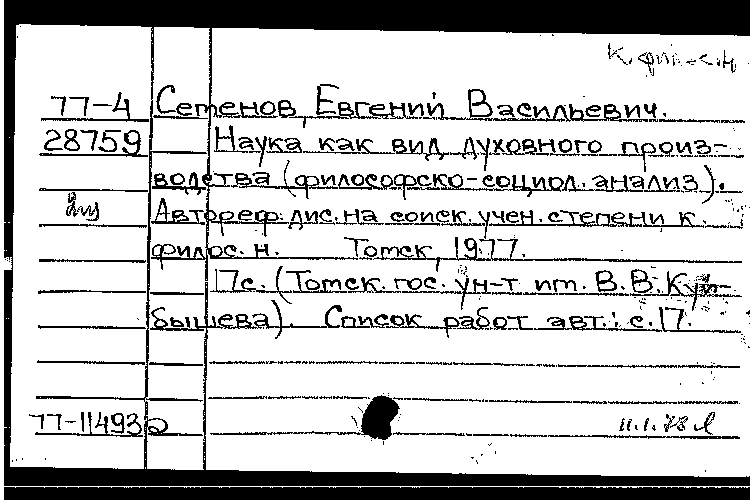 К. фил-с.н
77-4 Сетенов, Евгений Васильевич.
28759 Наука как вид духовного произ-
водства (философско-социол. анализ).
Автореф. дис. на соиск. учен. степени к.
филос. н. Томск, 1977.
17с. (Томск. гос. ун-т им. В.В. Куй-
бышева). Список работ авт.: с. 17.
77-11493 11.1.78